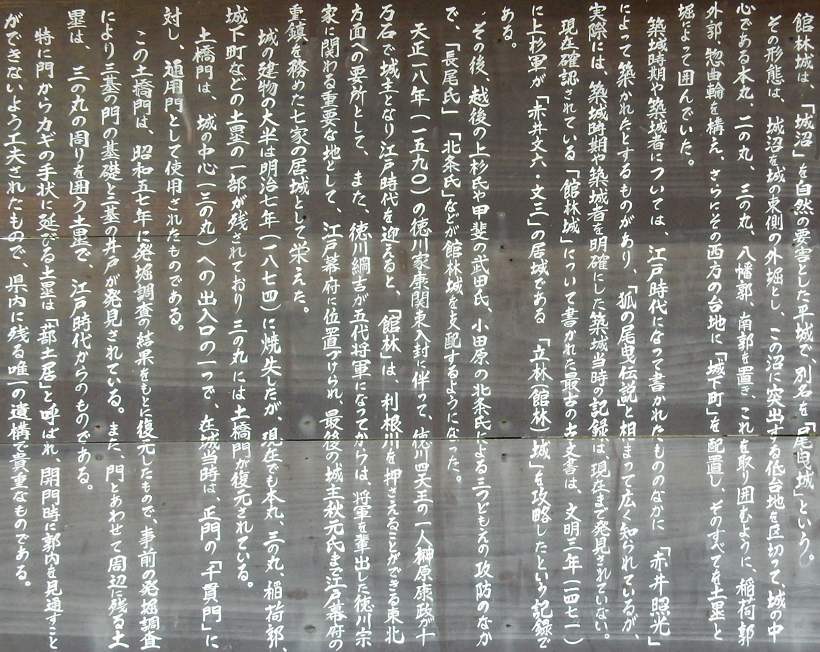 館林城は、「城沼」を自然の要害とした平城で、別名を「尾曳城」という。
その形態は、城沼を城の東側の外堀とし、この沼に突出する低台地を区切って、城の中
心である本丸、二の丸、三の丸、八幡郭、南郭を置き、これを取り囲むように、稲荷郭
外郭、惣曲輪を構え、さらにその西方の台地に「城下町」を配置し、そのすべてを土塁と
堀によって囲んでいた。
築城時期や築城者については、江戸時代になって書かれたもののなかに「赤井照光」
によって築かれたとするものがあり、「狐の尾曳伝説」と相まって広く知られているが、
実際には、築城時期や築城者を明確にした築城当時の記録は、現在まで発見されていない。
現在確認されている「館林城」について書かれた最古の古文書は、文明三年(一四七一)
に上杉軍が「赤井文六・文三」の居城である「立林(館林)城」を攻略したという記録で
ある。
その後、越後の上杉氏や甲斐の武田氏、小田原の北条氏による三つどもえの攻防のなか
で、「長尾氏」「北条氏」などが館林城を支配するようになった。
天正一八年(一五九〇)の徳川家康関東入封に伴って、徳川四天王の一人榊原康政が十
万石で城主となり江戸時代を迎えると、「館林」は、利根川を押さえることができる東北
方面への要所として、また、徳川綱吉が五代将軍になってからは、将軍を輩出した徳川宗
家に関わる重要な地として、江戸幕府に位置づけられ、最後の城主秋元氏まで江戸幕府の
重鎮を務めた七家の居城として栄えた。
城の建物の大半は明治七年(一八七四)に焼失したが、現在でも本丸、三の丸、稲荷郭、
城下町などの土塁の一部が残されており三の丸には土橋門が復元されている。
土橋門は、城の中心(三の丸)への出入口の一つで、在城当時は、正門の「千貫門」に
対し、通用門として使用されたものである。
この土橋門は、昭和五七年に発掘調査の結果をもとに復元したもので、事前の発掘調査
により三基の門の基礎と三基の井戸が発見されている。また、門とあわせて周辺に残る土
塁は、三の丸の周りを囲う土塁で、江戸時代からのものである。
特に門からカギの手状に延びる土塁は「蔀土居」と呼ばれ、開門時に郭内を見通すこと
ができないよう工夫されたもので、県内に残る唯一の遺構で貴重なものである。